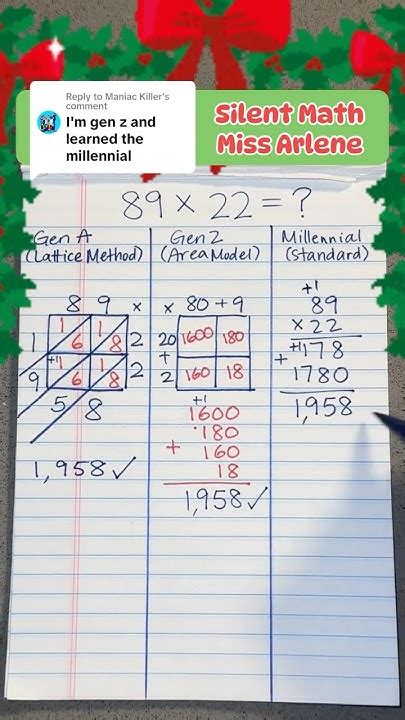 Reply to Maniac Killer's
comment
I'm gen z and
learned the
millennial
Silent Math
Miss Arlene
89 × 22 = ?
Gen A
(Lattice Method)
8 9 ×
1 1 1 2
6 8
9 +1 1 1 2
6 8
5 8
1,958 ✓
Gen Z
(Area Model)
× 80 + 9
20 1600 180
+
2 160 18
+1
1600
180
+ 160
18
1,958 ✓
Millennial
(Standard)
+1
89
× 22
+1178
+
1780
1,958